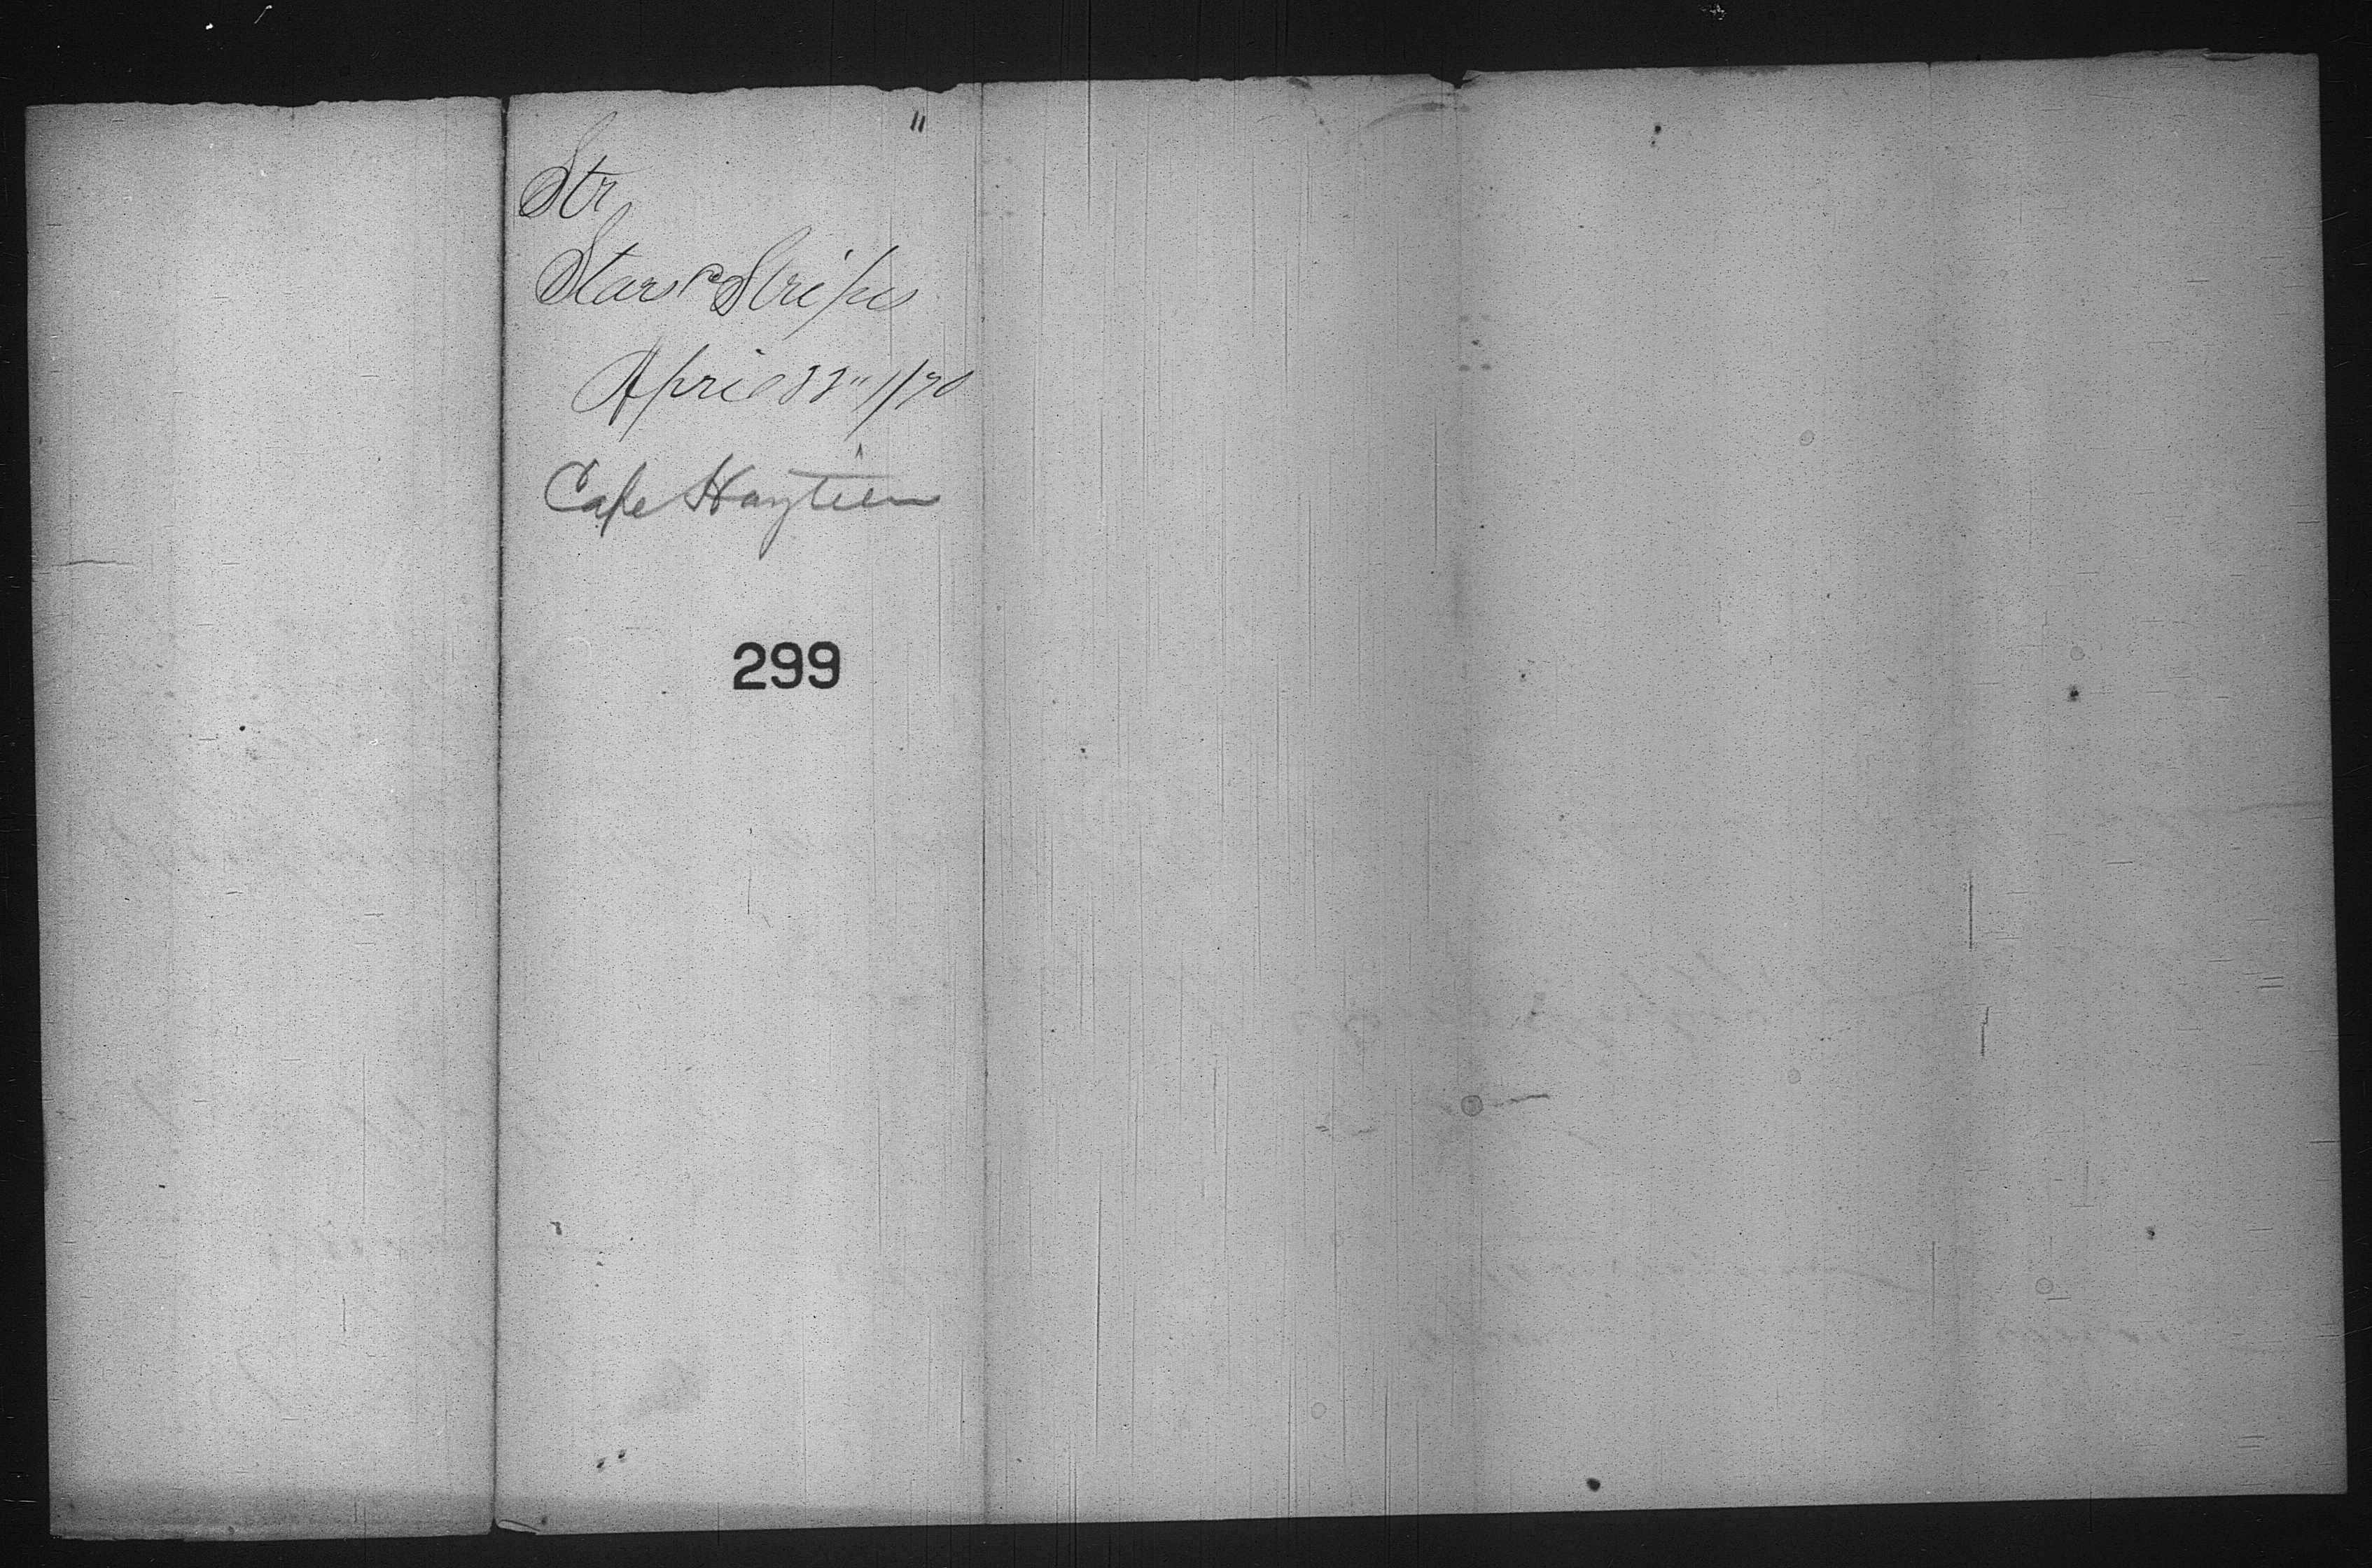 11
Str
Stars & Stripes
April 22" 1870
Cape Haytien
299